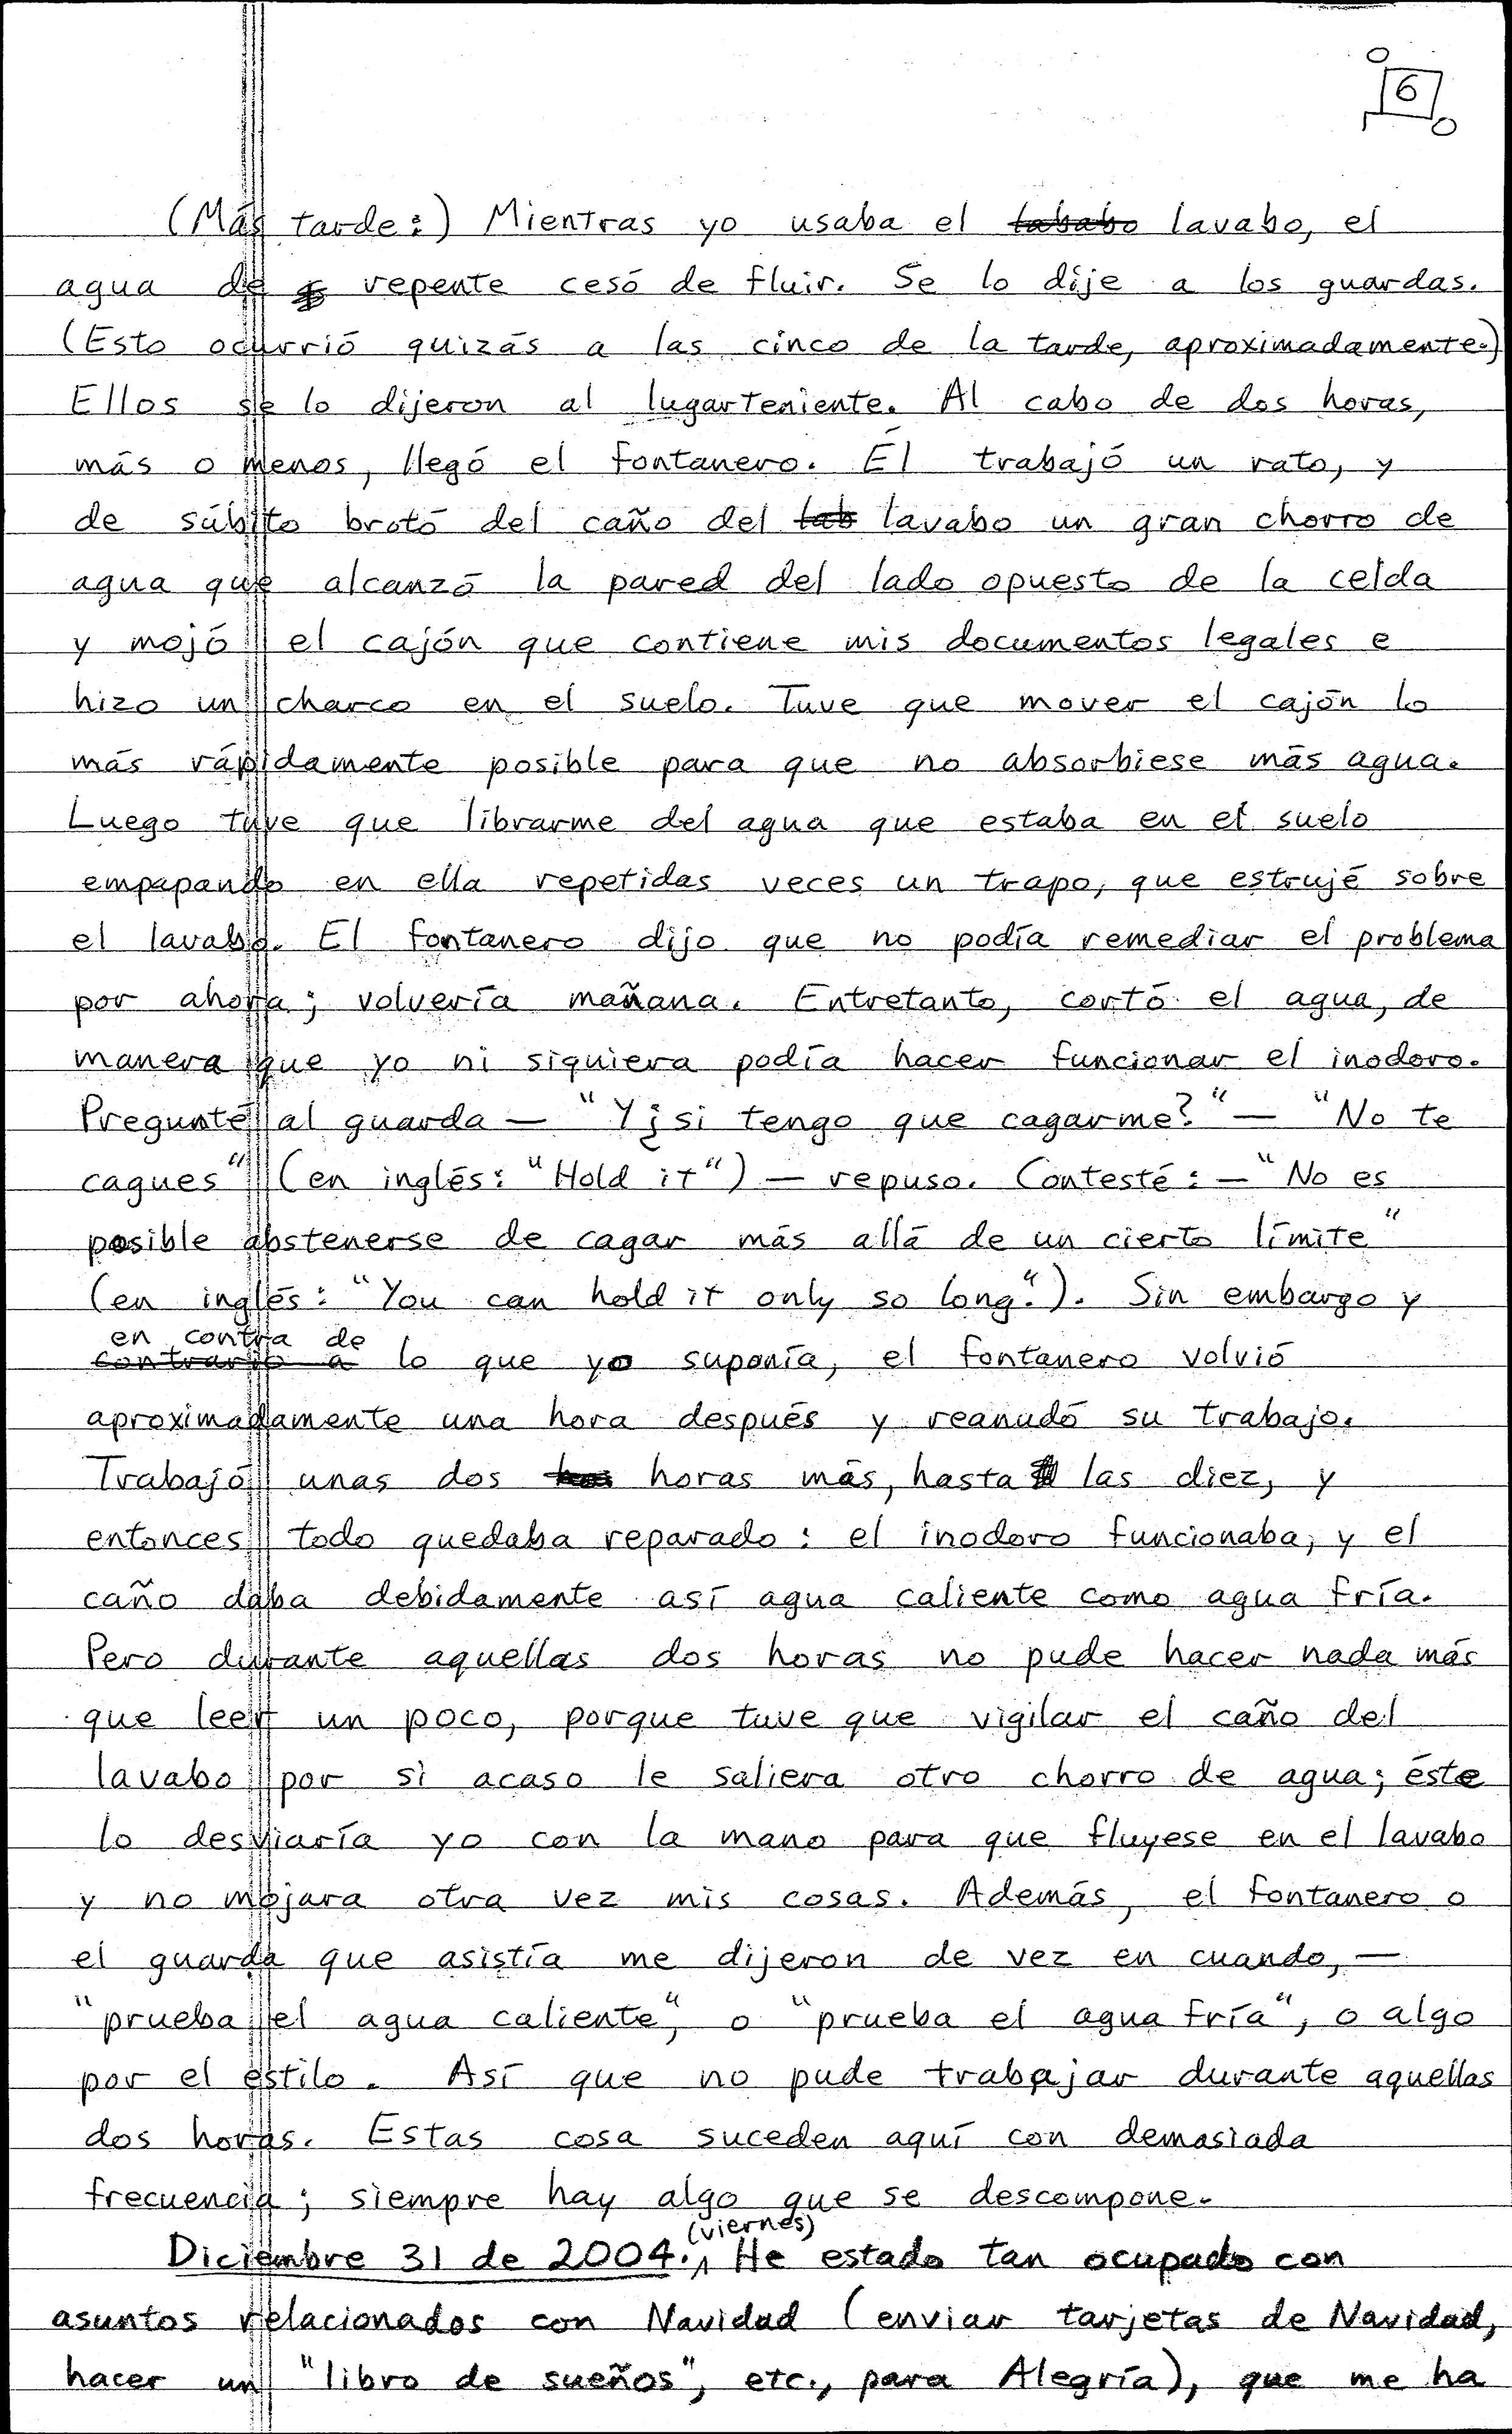 6
(Más tarde:) Mientras yo usaba el lababo lavabo, el
agua de repente cesó de fluir. Se lo dije a los guardas.
(Esto ocurrió quizás a las cinco de la tarde, aproximadamente.)
Ellos se lo dijeron al lugarteniente. Al cabo de dos horas,
más o menos, llegó el fontanero. Él trabajó un rato, y
de súbito brotó del caño del lab lavabo un gran chorro de
agua que alcanzó la pared del lado opuesto de la celda
y mojó el cajón que contiene mis documentos legales e
hizo un charco en el suelo. Tuve que mover el cajón lo
más rápidamente posible para que no absorbiese más agua.
Luego tuve que librarme del agua que estaba en el suelo
empapando en ella repetidas veces un trapo, que estrujé sobre
el lavabo. El fontanero dijo que no podía remediar el problema
por ahora; volvería mañana. Entretanto, cortó el agua, de
manera que yo ni siquiera podía hacer funcionar el inodoro.
Pregunté al guarda — "Y ¿si tengo que cagarme?" — "No te
cagues" (en inglés: "Hold it") — repuso. Contesté: — "No es
posible abstenerse de cagar más allá de un cierto límite"
(en inglés: "You can hold it only so long."). Sin embargo y
en contra de
contrario a lo que yo suponía, el fontanero volvió
aproximadamente una hora después y reanudó su trabajo.
Trabajó unas dos horas más, hasta las diez, y
entonces todo quedaba reparado: el inodoro funcionaba, y el
caño daba debidamente así agua caliente como agua fría.
Pero durante aquellas dos horas no pude hacer nada más
que leer un poco, porque tuve que vigilar el caño del
lavabo por si acaso le saliera otro chorro de agua; éste
lo desviaría yo con la mano para que fluyese en el lavabo
y no mojara otra vez mis cosas. Además, el fontanero o
el guarda que asistía me dijeron de vez en cuando, —
"prueba el agua caliente", o "prueba el agua fría", o algo
por el estilo. Así que no pude trabajar durante aquellas
dos horas. Estas cosa suceden aquí con demasiada
frecuencia; siempre hay algo que se descompone.
(viernes)
Diciembre 31 de 2004. He estado tan ocupado con
asuntos relacionados con Navidad (enviar tarjetas de Navidad,
hacer un "libro de sueños", etc., para Alegría), que me ha